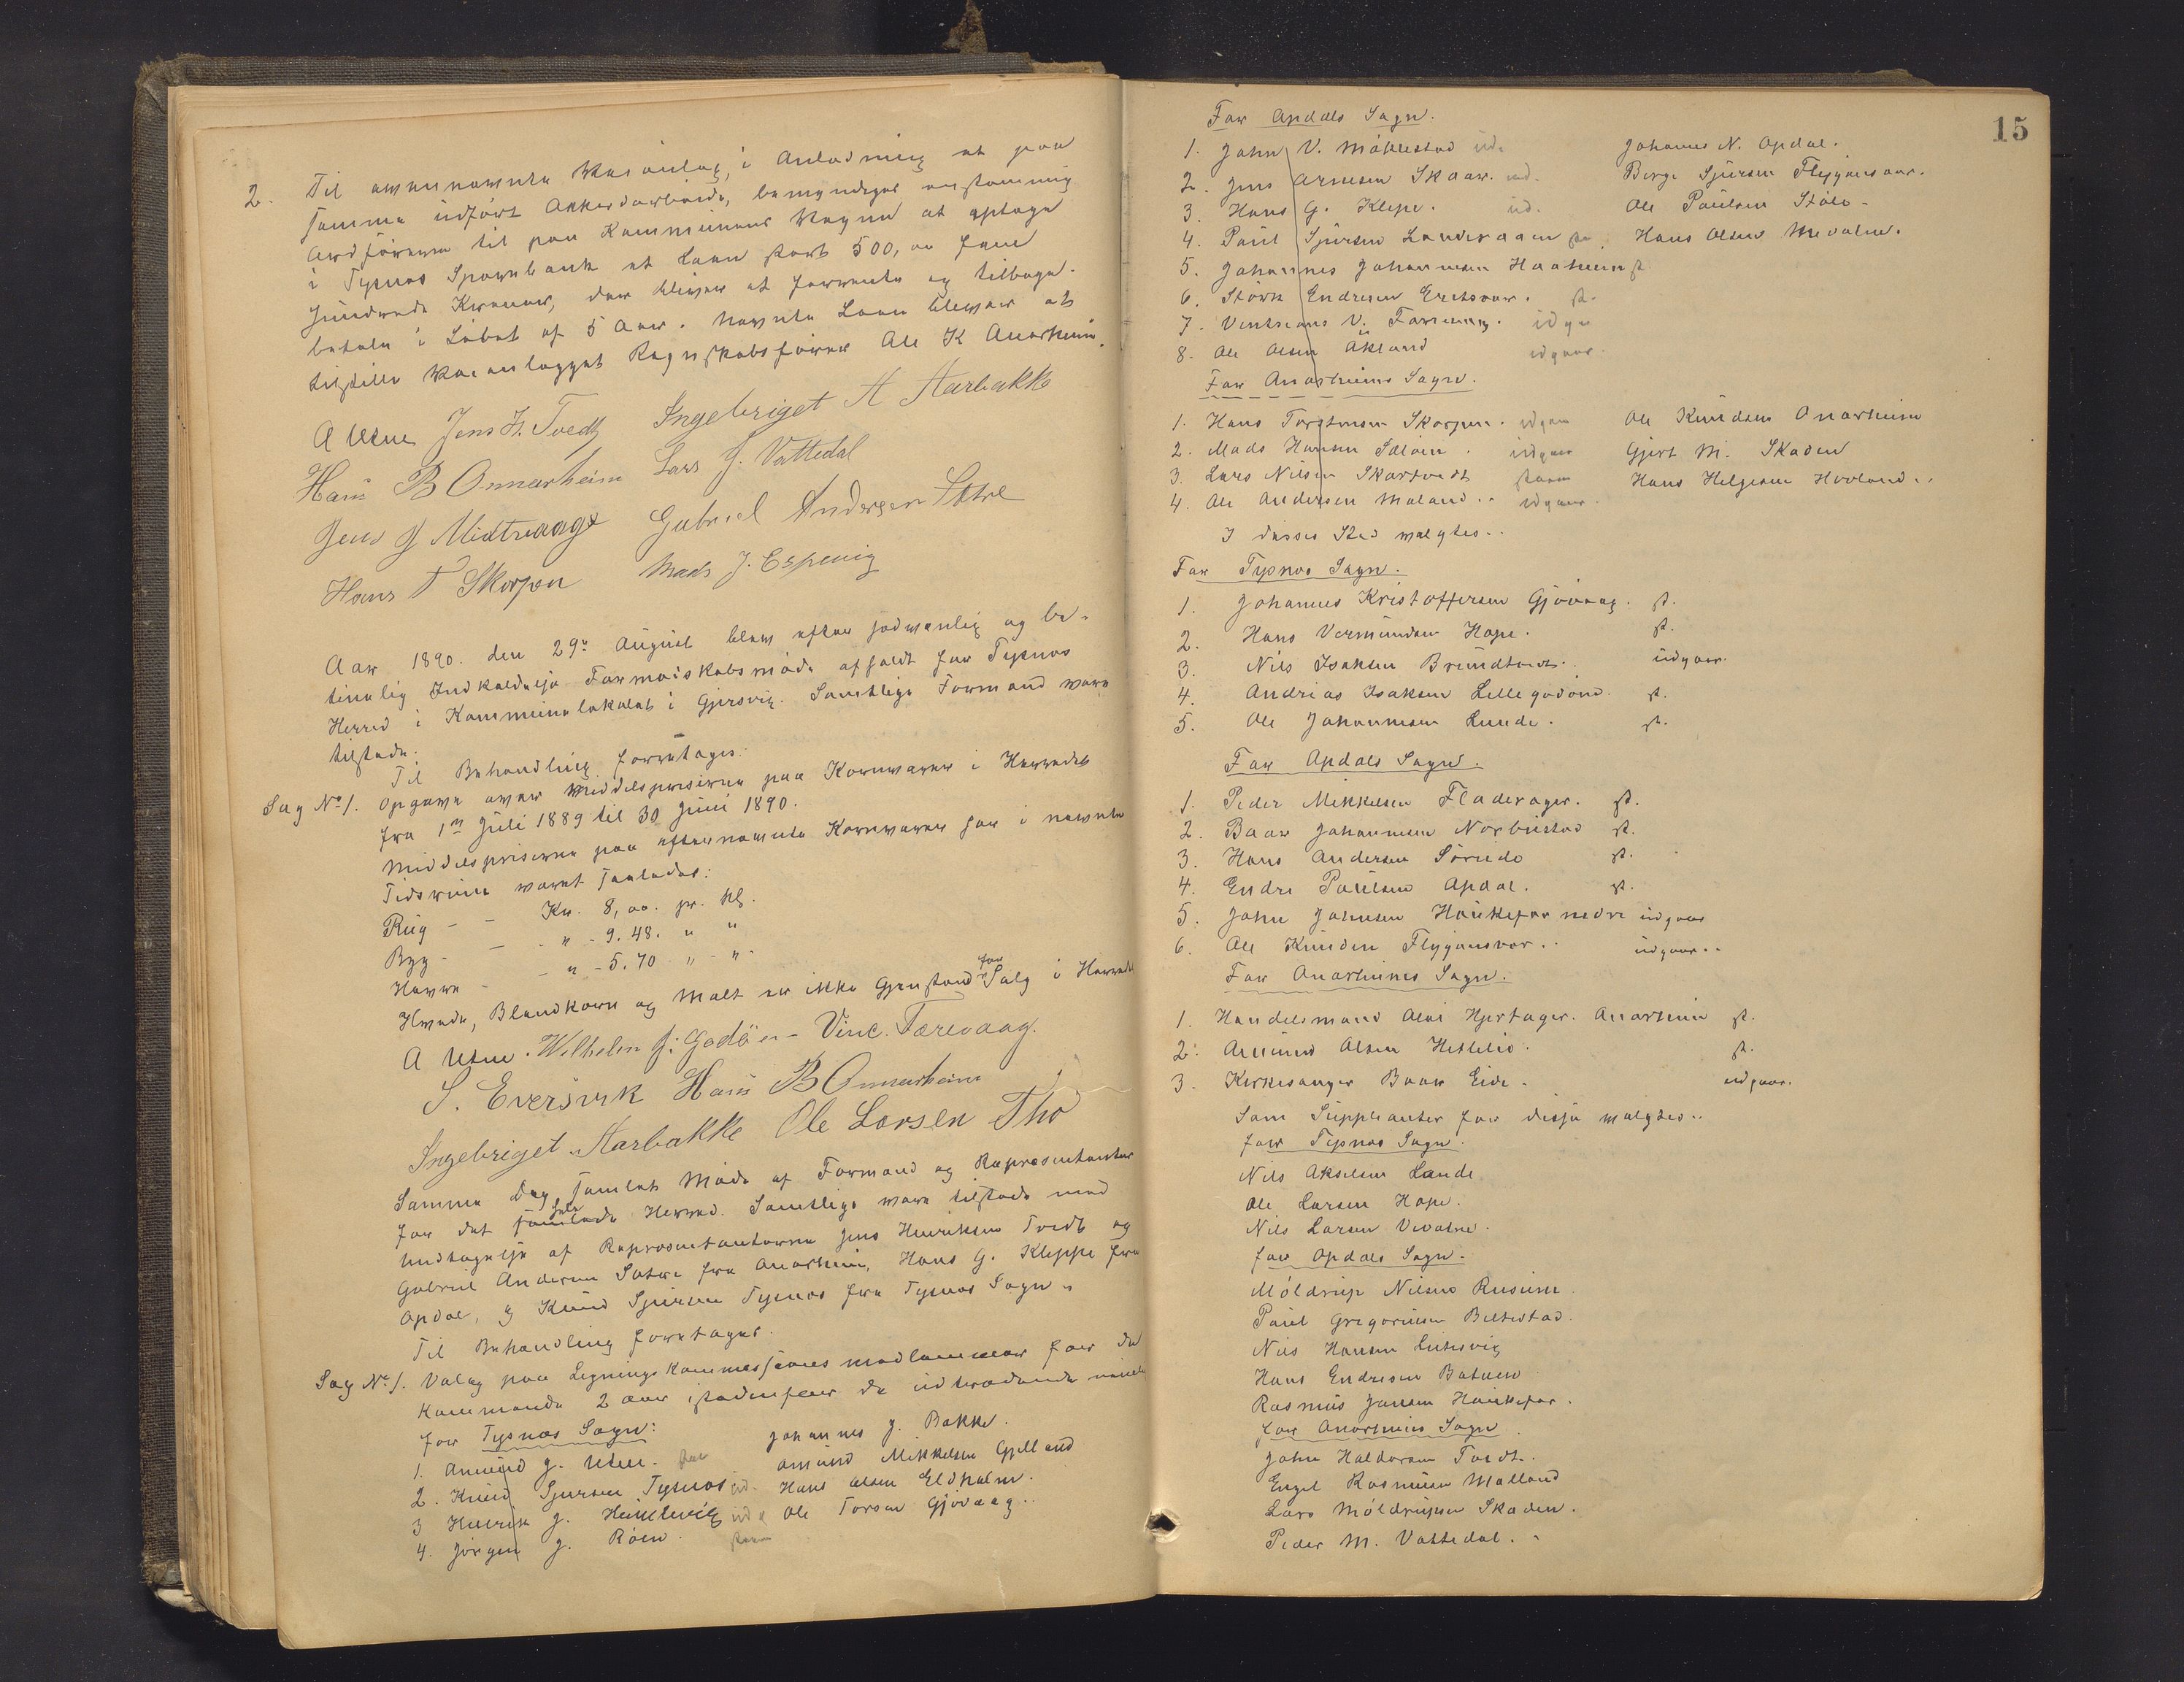 2. Til ovennævnte Veianlæg, i Anledning at paa
samme udført Akkordarbeide, bemyndiges enstemmig
Ordføreren til paa Kommunens Vegne at optage
i Tysnes Sparebank et Laan stort 500,00 fem
hundrede Kroner, der bliver at forrente og tilbage-
betale i Løbet af 5 Aar. Nævnte Laan bliver at
tilstille Veianlæggets Regnskabsfører Ole K Onarheim.
A Uttne Jens H. Tvedt Ingebriget A Aarbakke
Hans B Onnarheim Lars J. Vattedal
Jens J Midtvaage Gabriel Andersen Sætre
Hans T Skorpen Mads J. Espevig
Aar 1890 den 29de August blev efter sædvanlig og be-
timelig Indkaldelse Formandskabsmøde afholdt for Tysnes
Herred i Kommunelokalet i Gjersvig. Samtlige Formænd vare
tilstede.
Til Behandling foretages:
Sag No 1. Opgave over Middelspriserne paa Kornvarer i Herredet
fra 1ste Juli 1889 til 30 Juni 1890.
Middelspriserne paa efternævnte Kornvarer har i nævnte
Tidsrum været saaledes:
Rug - - Kr. 8,00. pr. hl.
Byg - - - " - 9.48. " "
Havre - - " - 5.70 - " - "
Hvede, Blandkorn og Malt er ikke Gjenstand for Salg i Herredet
A Uttne. Wilhelm J. Godøen - Vinc. Færevaag.
S. Eversvik Hans B Onnarheim
Ingebriget Aarbakke Ole Larsen Tho
Samme Dag samlet Møde af Formænd og Repræsentanter
for det hele Herred. Samtlige vare tilstede med
Undtagelse af Repræsentanterne Jens Henriksen Tvedt og
Gabriel Andersen Sætre fra Onarheim, Hans G. Kleppe fra
Opdal, og Knud Sjursen Tysnes fra Tysnes Sogn.
Til Behandling foretages.
Sag No 1. Valg paa Ligningskommissionsmedlemmer for de
kommende 2 Aar istedenfor de udtrædende
for Tysnes Sogn:
1. Amund J. Uttne. Johannes J. Bakke.
2. Knud Sjursen Tysnes ud. Amund Mikkelsen Gjelland
3 Henrik J. Heimlevig ud Hans Olsen Eldholm.
4. Jørgen J. Røen. Ole Torsen Gjøvaag..
15
For Opdals Sogn.
1. John V. Møklestad ud. Johannes N. Opdal.
2. Jens Arnesen Skaar. ud. Børge Sjursen Flygansvær.
3. Hans G. Klepe. ud. Ole Paulsen Støle-
4. Paul Sjursen Landevaagen st. Hans Olsen Mevatne.
5. Johannes Johannesen Haaheim st.
6. Størk Endresen Eversvær. st.
7. Vintsens V. Færevaag. udgr
8. Ole Olsen Økland udgaar.
For Onarheims Sogn.
1. Hans Torstensen Skorpen. udgaar Ole Knudsen Onarheim
2. Mads Hansen Søløen. udgaar Gjert M. Skaden
3. Lars Nilsen Skartvedt staar Hans Helgesen Hovland..
4. Ole Andersen Maland.. udgaar.
I disses Sted valgtes..
For Tysnes Sogn.
1. Johannes Kristoffersen Gjøvaag. st.
2. Hans Vermundsen Hope. st.
3. Nils Isaksen Brundtvedt. udgaar.
4. Andrias Isaksen Lillegodøen. st.
5. Ole Johannesen Lunde. st.
For Opdals Sogn.
1. Peder Mikkelsen Fladerager. st.
2. Baar Johannesen Norbustad st.
3. Hans Andersen Sørude st.
4. Endre Paulsen Opdal. st.
5. John Johnsen Haukefær nedre udgaar
6. Ole Knudsen Flygansvær.. udgaar..
For Onarheims Sogn.
1. Handelsmand Olai Hjertager. Onarheim st.
2. Amund Olsen Hetlelid. st.
3. Kirkesanger Baar Eide. udgaar.
Som Suppleanter for disse valgtes..
for Tysnes Sogn.
Nils Akselsen Lande
Ole Larsen Hope.
Nils Larsen Vevatne.
for Opdals Sogn.
Møldrup Nilsen Reisene.
Paul Gregoriusen Beltestad.
Nils Hansen Lukesvig
Hans Endresen Botnen
Rasmus Jansen Haukefær.
for Onarheims Sogn
John Haldorsen Tvedt.
Engel Rasmusen Malland
Lars Møldrupsen Skaden.
Peder M. Vattedal..